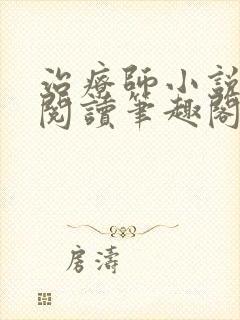 治療師小說
閱讀筆趣閣
房濤